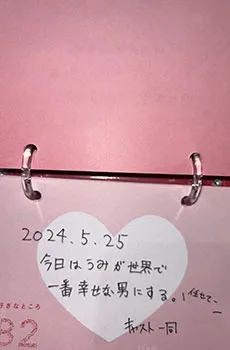 2024.5.25
今日はうみが世界で
一番幸せな男にする。! 任せて、
キャスト一同
きなところ
82